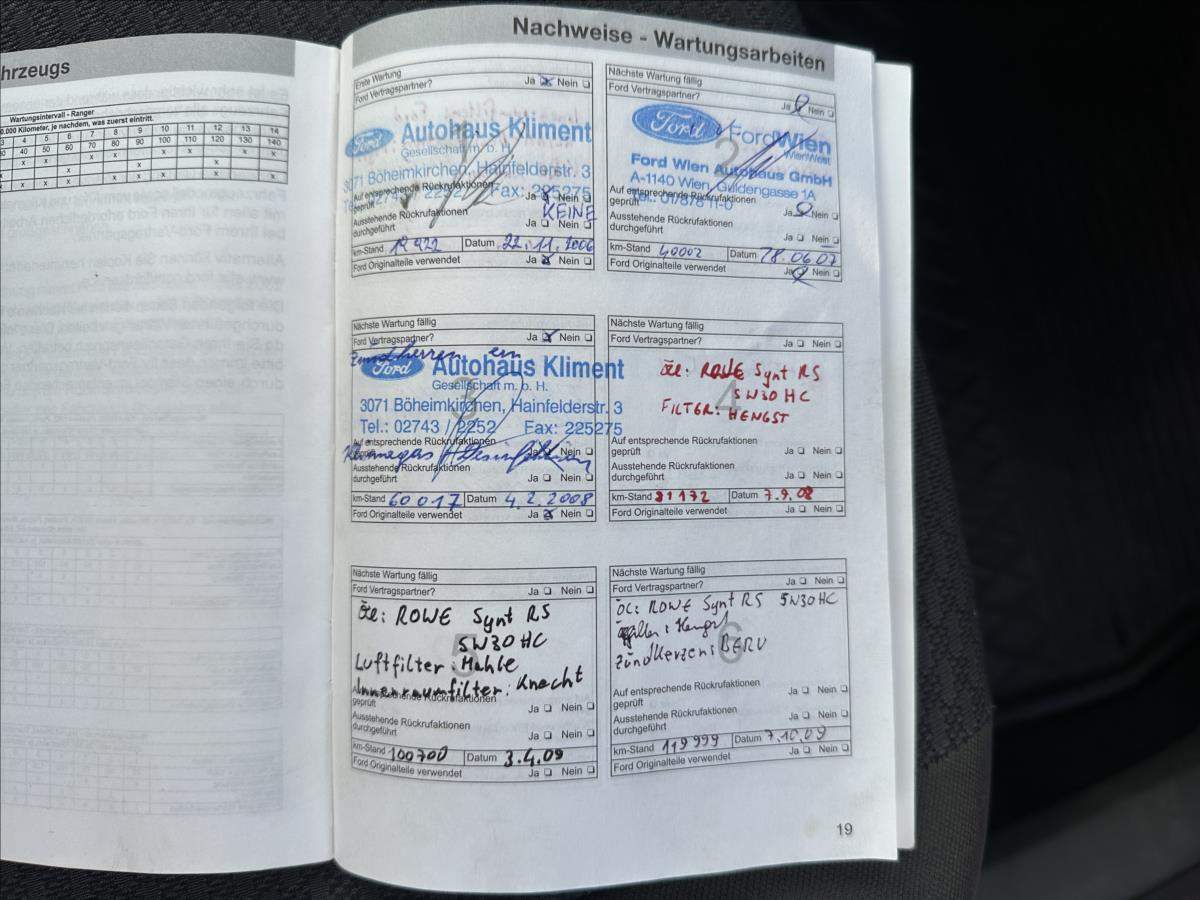 hrzeugs
Wartungsintervall - Ranger
0.000 Kilometer, je nachdem, was zuerst eintritt.
3 4 5 6 7 8 9 10 11 12 13 14
40 50 60 70 80 90 100 110 120 130 140
Nachweise - Wartungsarbeiten
Erste Wartung
Ford Vertragspartner? Ja Nein
Ford Autohaus Kliment
Gesellschaft m. b. H.
3071 Böheimkirchen, Hainfelderstr. 3
Tel.: 02743 / 2252 Fax: 225275
Auf entsprechende Rückrufaktionen
geprüft Ja Nein
KEINE
Ausstehende Rückrufaktionen
durchgeführt Ja Nein
km-Stand 19922 Datum 22.11.2006
Ford Originalteile verwendet Ja Nein
Nächste Wartung fällig
Ford Vertragspartner? Ja Nein
2
Ford FordWien
WienWest
Ford Wien Autohaus GmbH
A-1140 Wien, Guldengasse 1A
Tel.: 01/878 11-0
Auf entsprechende Rückrufaktionen
geprüft Ja Nein
Ausstehende Rückrufaktionen
durchgeführt Ja Nein
km-Stand 40002 Datum 28.06.07
Ford Originalteile verwendet Ja Nein
Nächste Wartung fällig
Ford Vertragspartner? Ja Nein
3
Ford Autohaus Kliment
Gesellschaft m. b. H.
3071 Böheimkirchen, Hainfelderstr. 3
Tel.: 02743 / 2252 Fax: 225275
Auf entsprechende Rückrufaktionen
geprüft Ja Nein
Ausstehende Rückrufaktionen
durchgeführt Ja Nein
km-Stand 60017 Datum 4.2.2008
Ford Originalteile verwendet Ja Nein
Nächste Wartung fällig
Ford Vertragspartner? Ja Nein
4
öl: ROWE Synt RS
5W30 HC
FILTER: HENGST
Auf entsprechende Rückrufaktionen
geprüft Ja Nein
Ausstehende Rückrufaktionen
durchgeführt Ja Nein
km-Stand 81172 Datum 7.9.08
Ford Originalteile verwendet Ja Nein
Nächste Wartung fällig
Ford Vertragspartner? Ja Nein
5
öl: ROWE Synt RS
5W30 HC
Luftfilter: Mahle
Innenraumfilter: Knecht
Auf entsprechende Rückrufaktionen
geprüft Ja Nein
Ausstehende Rückrufaktionen
durchgeführt Ja Nein
km-Stand 100700 Datum 3.4.09
Ford Originalteile verwendet Ja Nein
Nächste Wartung fällig
Ford Vertragspartner? Ja Nein
6
öl: ROWE Synt RS 5W30 HC
Zündkerzen: BERU
Auf entsprechende Rückrufaktionen
geprüft Ja Nein
Ausstehende Rückrufaktionen
durchgeführt Ja Nein
km-Stand 119999 Datum 7.10.09
Ford Originalteile verwendet Ja Nein
19